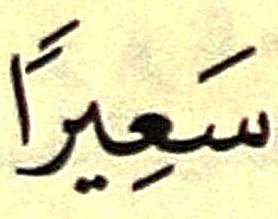 سَعِيرًا